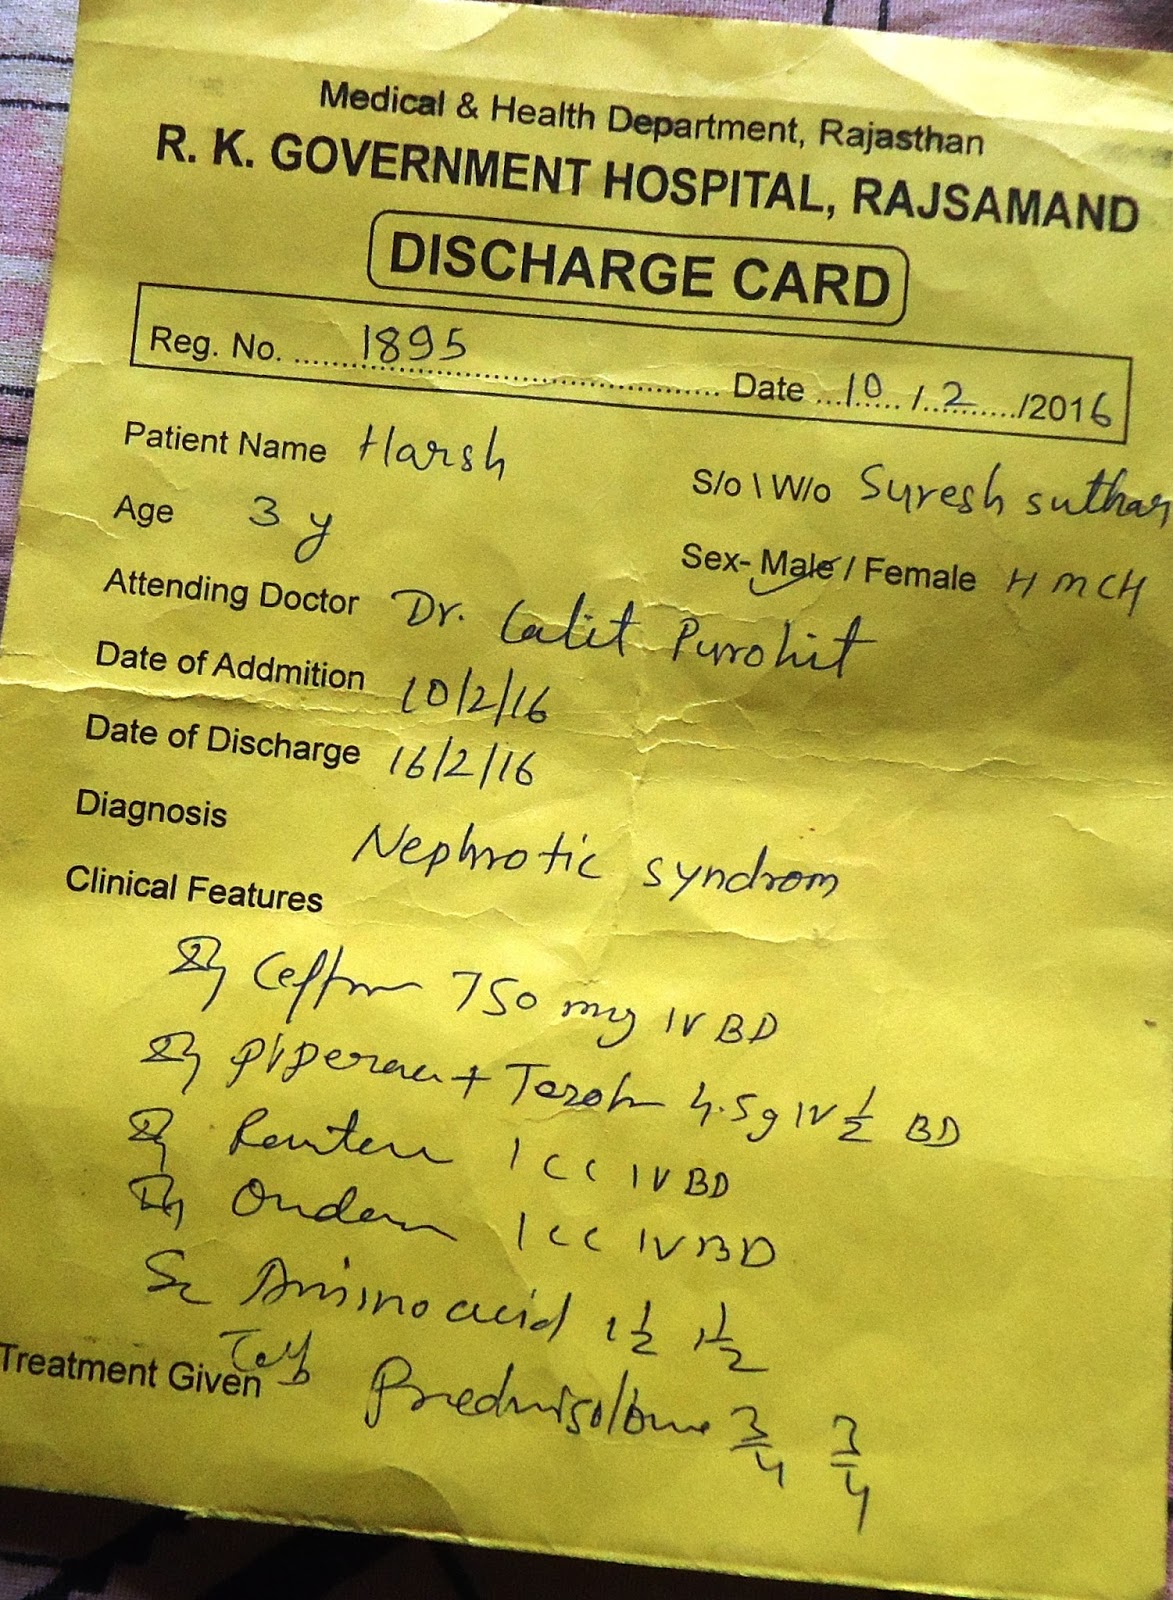 Medical & Health Department, Rajasthan
R. K. GOVERNMENT HOSPITAL, RAJSAMAND
DISCHARGE CARD
Reg. No. ......1895.......... Date ...10.../..2....../2016
Patient Name Harsh S/o \ W/o Suresh suthar
Age 3 y Sex- Male / Female H M CH
Attending Doctor Dr. Lalit Purohit
Date of Addmition 10/2/16
Date of Discharge 16/2/16
Diagnosis Nephrotic syndrom
Clinical Features
750 mg IV BD
+ 4.5g IV 1/2 BD
1 CC IV BD
1 CC IV BD
Amino acid 1 1/2 1 1/2
Treatment Given Tab Prednisolone 3/4 3/4